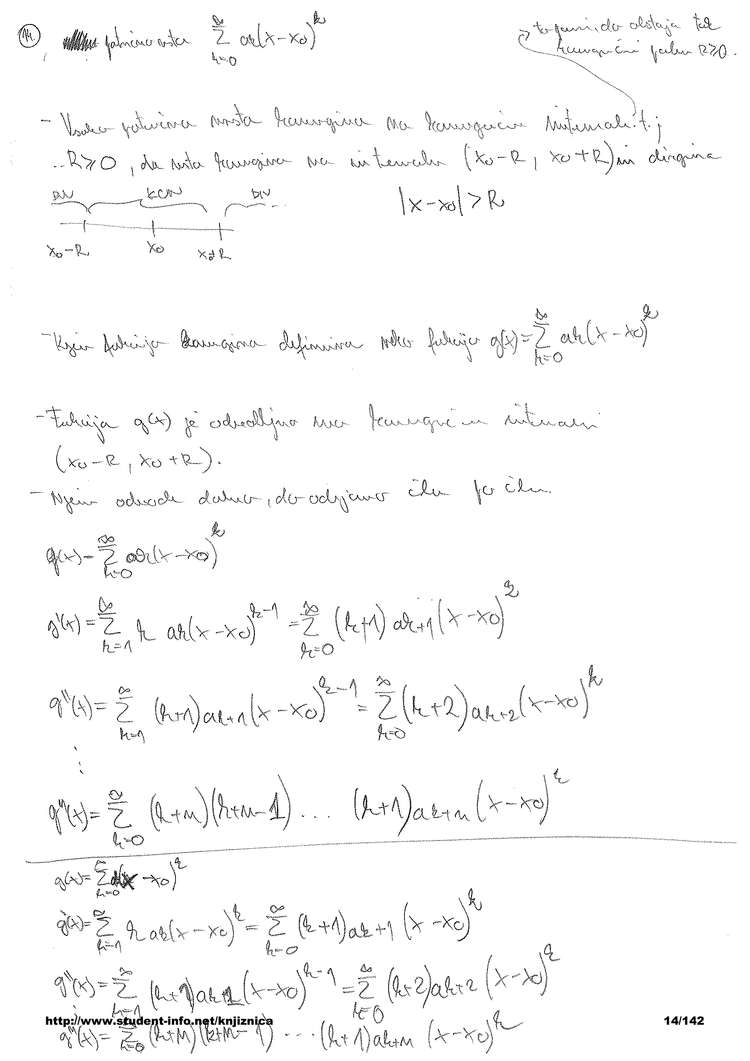 14. potenčna vrsta \sum_{k=0}^{\infty} ak(x-x0)^k
→ to pomeni, da obstaja tak
R≥0.
- Vsaka potenčna vrsta konvergira na konvergenčnem intervalu t.j.
..R≥0, da vrsta konvergira na intervalu (x0-R, x0+R) in divergira
DIV KON DIV ...
|x-x0|>R
x0-R x0 x0+R
- funkcija konvergira definira neko funkcijo g(x)=\sum_{k=0}^{\infty} ak(x-x0)^k
- Funkcija g(x) je odvedljiva na konvergenčnem intervalu
(x0-R, x0+R).
- Njen odvode dobimo, da odvajamo člen po členu.
g(x)=\sum_{k=0}^{\infty} ak(x-x0)^k
g'(x)=\sum_{k=1}^{\infty} k ak(x-x0)^{k-1} = \sum_{k=0}^{\infty} (k+1)ak+1(x-x0)^k
g''(x)=\sum_{k=1}^{\infty} (k+1)ak+1(x-x0)^{k-1} = \sum_{k=0}^{\infty} (k+2)ak+2(x-x0)^k
⋮
g^n(x)=\sum_{k=0}^{\infty} (k+n)(k+n-1) ... (k+1)ak+n(x-x0)^k
g(x)=\sum_{k=0}^{\infty} (x-x0)^k
g'(x)=\sum_{k=1}^{\infty} k ak(x-x0)^k = \sum_{k=0}^{\infty} (k+1)ak+1(x-x0)^k
g''(x)=\sum_{k=1}^{\infty} (k+1)ak+1(x-x0)^{k-1} = \sum_{k=0}^{\infty} (k+2)ak+2(x-x0)^k
http://www.student-info.net/knjiznica 14/142
g^n(x)=\sum_{k=0}^{\infty} (k+n)(k+n-1) ... (k+1)ak+n(x-x0)^k